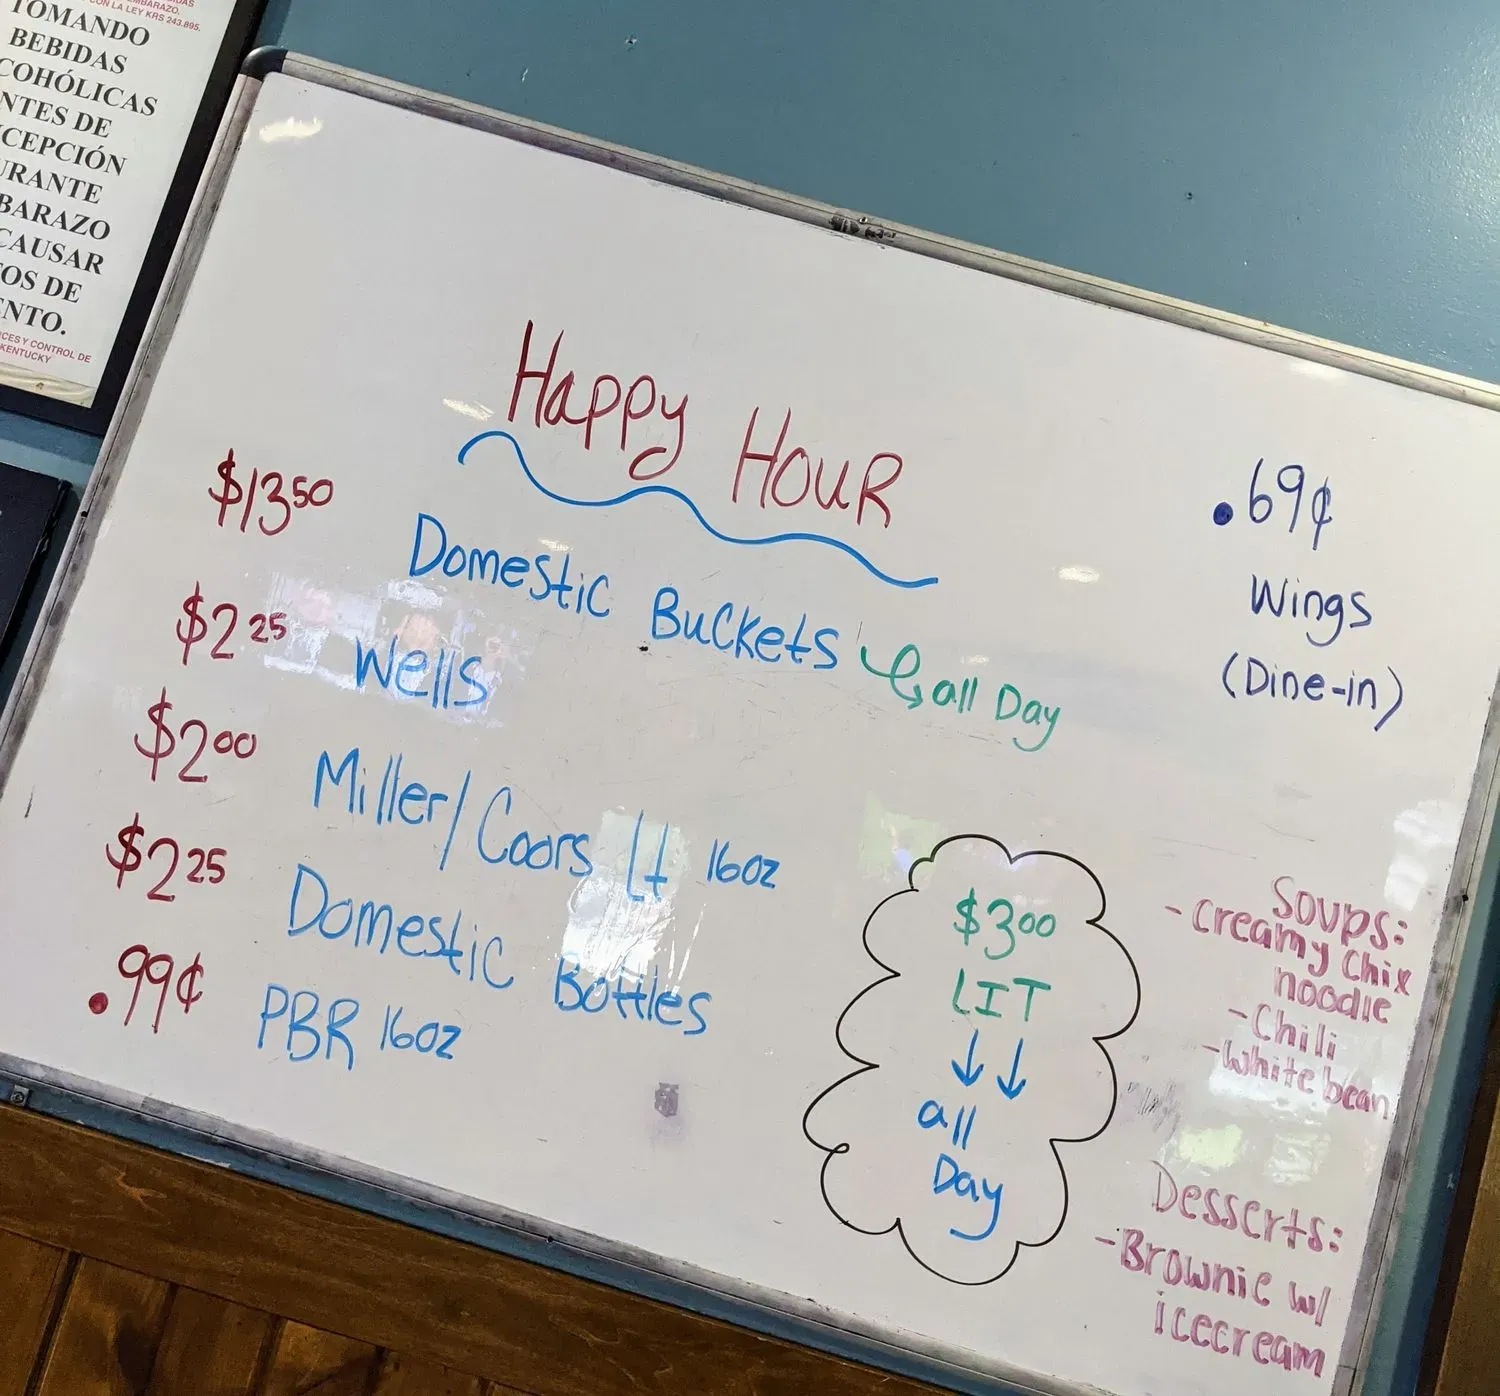 EMBARAZO.
CON LA LEY KRS 243.895.
TOMANDO
BEBIDAS
COHÓLICAS
NTES DE
CEPCIÓN
URANTE
BARAZO
CAUSAR
OS DE
ENTO.
CES Y CONTROL DE
KENTUCKY
Happy HOUR
$13.50 Domestic Buckets all Day
$2.25 Wells
$2.00 Miller/Coors Lt 16oz
$2.25 Domestic Bottles
.99¢ PBR 16oz
.69¢
Wings
(Dine-in)
$3.00
LIT
all
Day
Soups:
-Creamy Chix
noodle
-Chili
-White bean
Desserts:
-Brownie w/
icecream